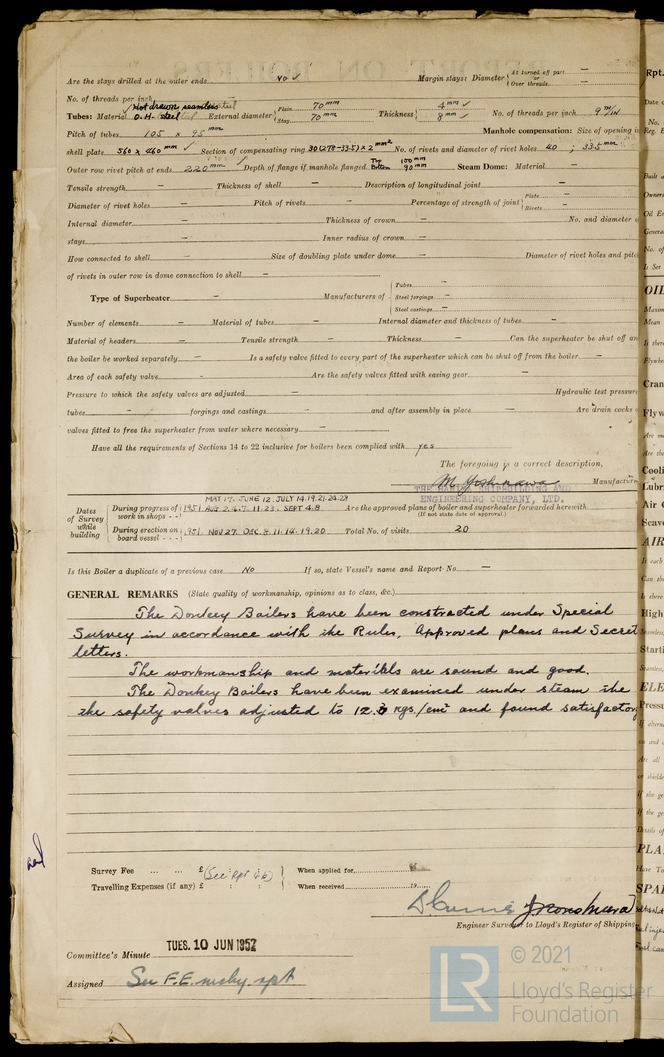 Are the stays drilled at the outer ends No ✓ Margin stays: Diameter { At turned off part – or Over threads –
No. of threads per inch
Tubes: Material Hot drawn seamless O.H. steel External diameter { Plain 70 mm Stay 70 mm Thickness { 4 mm ✓ 8 mm ✓ No. of threads per inch 9
Pitch of tubes 105 × 95 mm Manhole compensation: Size of opening in
shell plate 560 × 460 mm ✓ Section of compensating ring 30(278-33.5)×2 mm² No. of rivets and diameter of rivet holes 40 ; 33.5 mm
Outer row rivet pitch at ends 220 mm ✓ Depth of flange if manhole flanged Top 100 mm Bottom 90 mm Steam Dome: Material –
Tensile strength – Thickness of shell – Description of longitudinal joint –
Diameter of rivet holes – Pitch of rivets – Percentage of strength of joint { Plate – Rivets –
Internal diameter – Thickness of crown – No. and diameter o
stays – Inner radius of crown –
How connected to shell – Size of doubling plate under dome – Diameter of rivet holes and pitc
of rivets in outer row in dome connection to shell –
Type of Superheater – Manufacturers of { Tubes – Steel forgings – Steel castings –
Number of elements – Material of tubes – Internal diameter and thickness of tubes –
Material of headers – Tensile strength – Thickness – Can the superheater be shut off an
the boiler be worked separately – Is a safety valve fitted to every part of the superheater which can be shut off from the boiler –
Area of each safety valve – Are the safety valves fitted with easing gear –
Pressure to which the safety valves are adjusted – Hydraulic test pressure
tubes – forgings and castings – and after assembly in place – Are drain cocks o
valves fitted to free the superheater from water where necessary –
Have all the requirements of Sections 14 to 22 inclusive for boilers been complied with yes
The foregoing is a correct description,
M. Yoshinawa Manufactur
ENGINEERING COMPANY, LTD.
Dates of Survey while building { During progress of work in shops - - 1951 MAY 17. JUNE 12. JULY 14.19.21.24.28 AUG 2.4.7.11.23. SEPT 4.8 Are the approved plans of boiler and superheater forwarded herewith (If not state date of approval.)
During erection on board vessel - - - 1951 NOV 27. DEC 8.11.14.19.20 Total No. of visits 20
Is this Boiler a duplicate of a previous case No If so, state Vessel's name and Report No. –
GENERAL REMARKS (State quality of workmanship, opinions as to class, &c.)
The Donkey Boilers have been constructed under Special
Survey in accordance with the Rules, Approved plans and Secret
letters.
The workmanship and materials are sound and good.
The Donkey Boilers have been examined under steam the
the safety valves adjusted to 12.3 kgs./cm² and found satisfactory
Survey Fee ... ... £ (See Rpt 4b) When applied for
Travelling Expenses (if any) £ : : When received 19
Engineer Surveyor to Lloyd's Register of Shipping
Committee's Minute TUES. 10 JUN 1952
Assigned See F.E. mchy. rpt
LR
© 2021
Lloyd's Register
Foundation